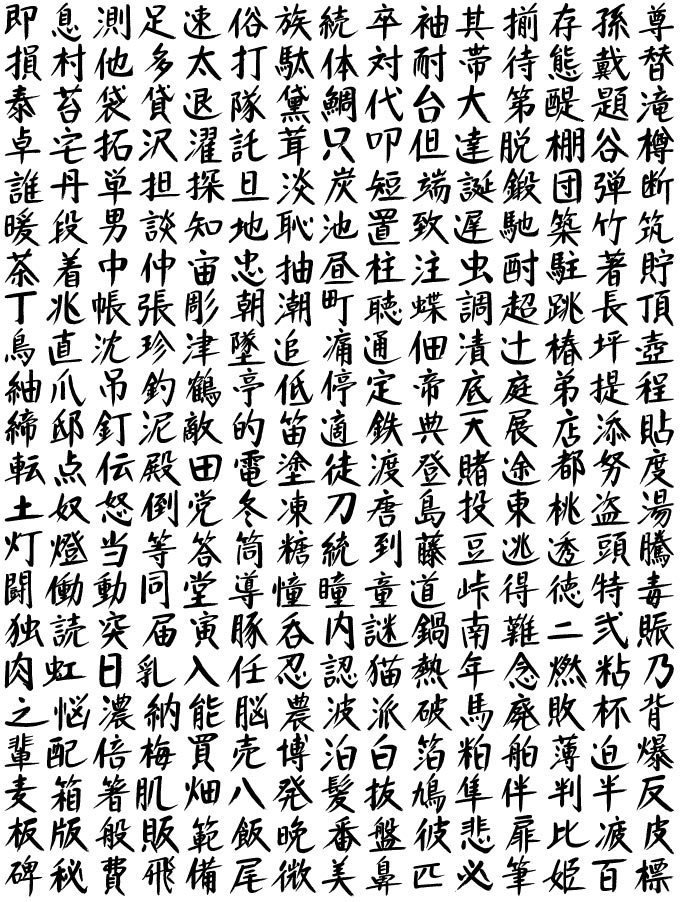 即息測足速俗族続卒袖其揃存孫尊
損村他多太打駄体対耐帯待態戴替
泰苔袋貸退隊黛鯛代台大第醍題滝
卓宅拓沢濯託茸只叩但達脱棚谷樽
誰丹単担探旦淡炭短端誕鍛団弾断
暖段男談知地恥池置致遅馳築竹筑
茶着中仲宙忠抽昼柱注虫酎駐著貯
丁兆帳張彫朝潮町聴蝶調超跳長頂
鳥直沈珍津墜追痛通佃漬辻椿坪壺
紬爪吊釣鶴亭低停定帝底庭弟提程
締邸釘泥敵的笛適鉄典天展店添貼
転点伝殿田電塗徒渡登賭途都努度
土奴怒倒党冬凍刀唐島投東桃盗湯
灯燈当等答筒糖統到藤豆逃透頭騰
闘働動同堂導憧瞳童道峠得徳特毒
独読突届寅豚呑内謎鍋南難二弐賑
肉虹日乳入任忍認猫熱年念燃粘乃
之悩濃納能脳農波派破馬廃敗杯背
輩配倍梅買売博泊白箔粕舶薄迫爆
麦箱箸肌畑八発髪抜鳩隼伴判半反
板版般販範飯晩番盤彼悲扉比疲皮
碑秘費飛備尾微美鼻匹必筆姫百標